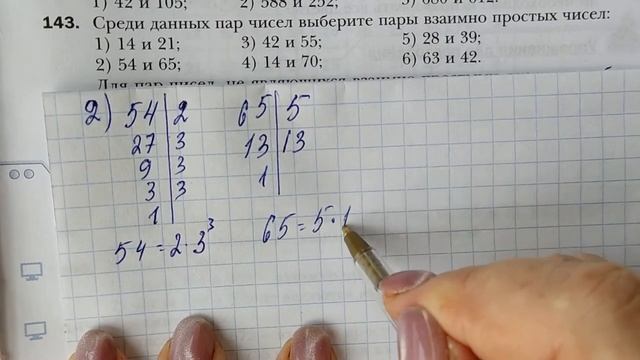 1) 42 и 105; 2) 588 и 252; 3) 680 и 612.
143. Среди данных пар чисел выберите пары взаимно простых чисел:
1) 14 и 21; 3) 42 и 55; 5) 28 и 39;
2) 54 и 65; 4) 14 и 70; 6) 63 и 42.
Для пар чисел, не являющихся взаимно
2) 54 | 2 65 | 5
27 | 3 13 | 13
9 | 3 1
3 | 3
1
54 = 2 · 3³ 65 = 5 · 1